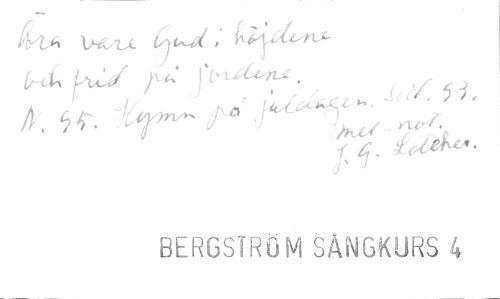 Ära vare Gud i höjdene
och frid på jordene.
N. 95. Hymn på juldagen. Sid. 93.
met. not.
J. G.
BERGSTRÖM SÅNGKURS 4